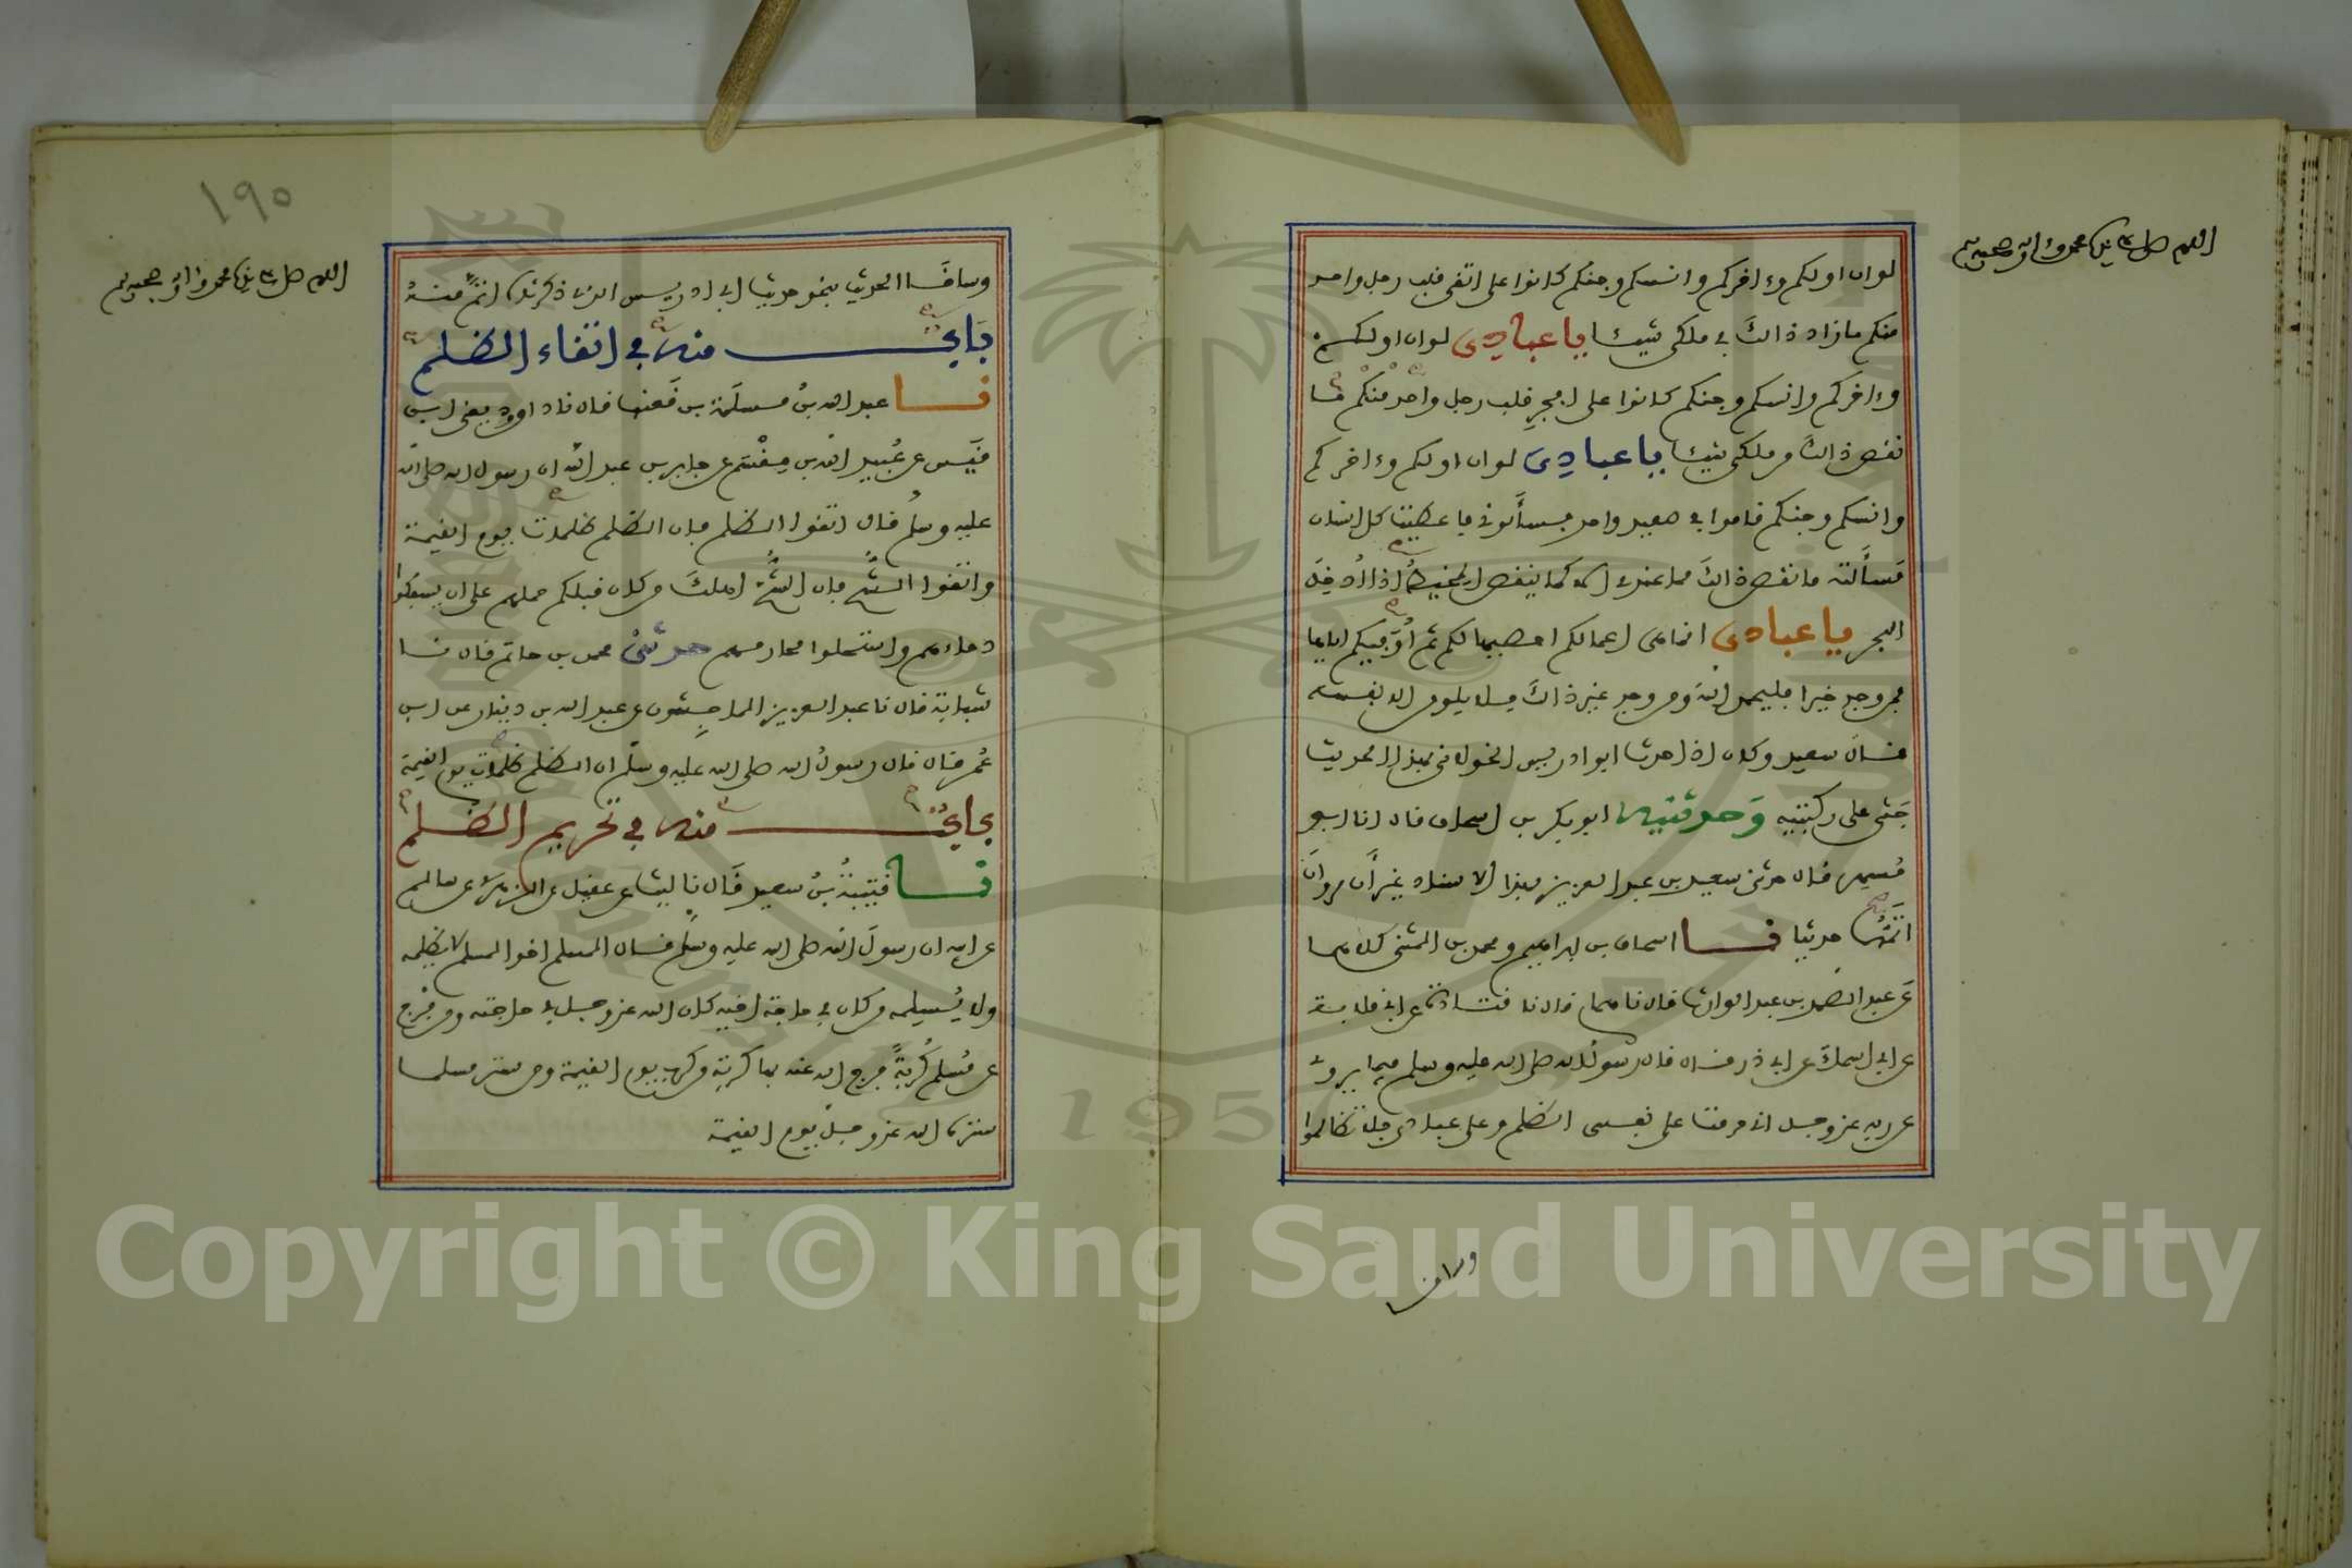 اللهم صل على سيدنا محمد وءاله وصحبه وسلم
لو ان اولكم وءاخركم وانسكم وجنكم كانوا على اتقى قلب رجل واحد
منكم ما زاد ذالك في ملكي شيئا يا عبادي لو ان اولكم
وءاخركم وانسكم وجنكم كانوا على افجر قلب رجل واحد منكم ما
نقص ذالك من ملكي شيئا يا عبادي لو ان اولكم وءاخركم
وانسكم وجنكم قاموا في صعيد واحد فسألوني فأعطيت كل انسان
مسألته ما نقص ذالك مما عندي الا كما ينقص المخيط اذا أدخل
البحر يا عبادي انما هي اعمالكم احصيها لكم ثم أوفيكم اياها
فمن وجد خيرا فليحمد الله ومن وجد غير ذالك فلا يلومن الا نفسه
قال سعيد وكان اذا حدث ابو ادريس الخولاني بهذا الحديث
جثى على ركبتيه وحدثنيه ابو بكر بن اسحاق قال انا ابو
مسهر قال حدثني سعيد بن عبد العزيز بهذا الاسناد غير أن مروان
اتمهما حديثا نا اسحاق بن ابراهيم ومحمد بن المثنى كلاهما
عن عبد الصمد بن عبد الوارث قال نا همام قال نا قتادة عن ابي قلابة
عن ابي اسماء عن ابي ذر قال قال رسول الله صلى الله عليه وسلم فيما يروي
عن ربه عز وجل اني حرمت على نفسي الظلم وعلى عبادي فلا تظالموا
وساق
١٩٥
اللهم صل على سيدنا محمد وءاله وصحبه وسلم
وساق الحديث بنحو حديث ابي ادريس الذي ذكرناه اتم منه
باب منه في اتقاء الظلم
نا عبد الله بن مسلمة بن قعنب قال نا داوود يعني ابن
قيس عن عبيد الله بن مقسم عن جابر بن عبد الله ان رسول الله صلى الله
عليه وسلم قال اتقوا الظلم فإن الظلم ظلمات يوم القيمة
واتقوا الشح فإن الشح اهلك من كان قبلكم حملهم على ان يسفكوا
دماءهم واستحلوا محارمهم حدثني محمد بن حاتم قال نا
شبابة قال نا عبد العزيز الماجشون عن عبد الله بن دينار عن ابن
عمر قال قال رسول الله صلى الله عليه وسلم ان الظلم ظلمات يوم القيمة
باب منه في تحريم الظلم
نا قتيبة بن سعيد قال نا ليث عن عقيل عن الزهري عن سالم
عن ابيه ان رسول الله صلى الله عليه وسلم قال المسلم اخو المسلم لا يظلمه
ولا يسلمه من كان في حاجة اخيه كان الله عز وجل في حاجته ومن فرج
عن مسلم كربة فرج الله عنه بها كربة من كرب يوم القيمة ومن ستر مسلما
ستره الله عز وجل يوم القيمة
1957
Copyright © King Saud University